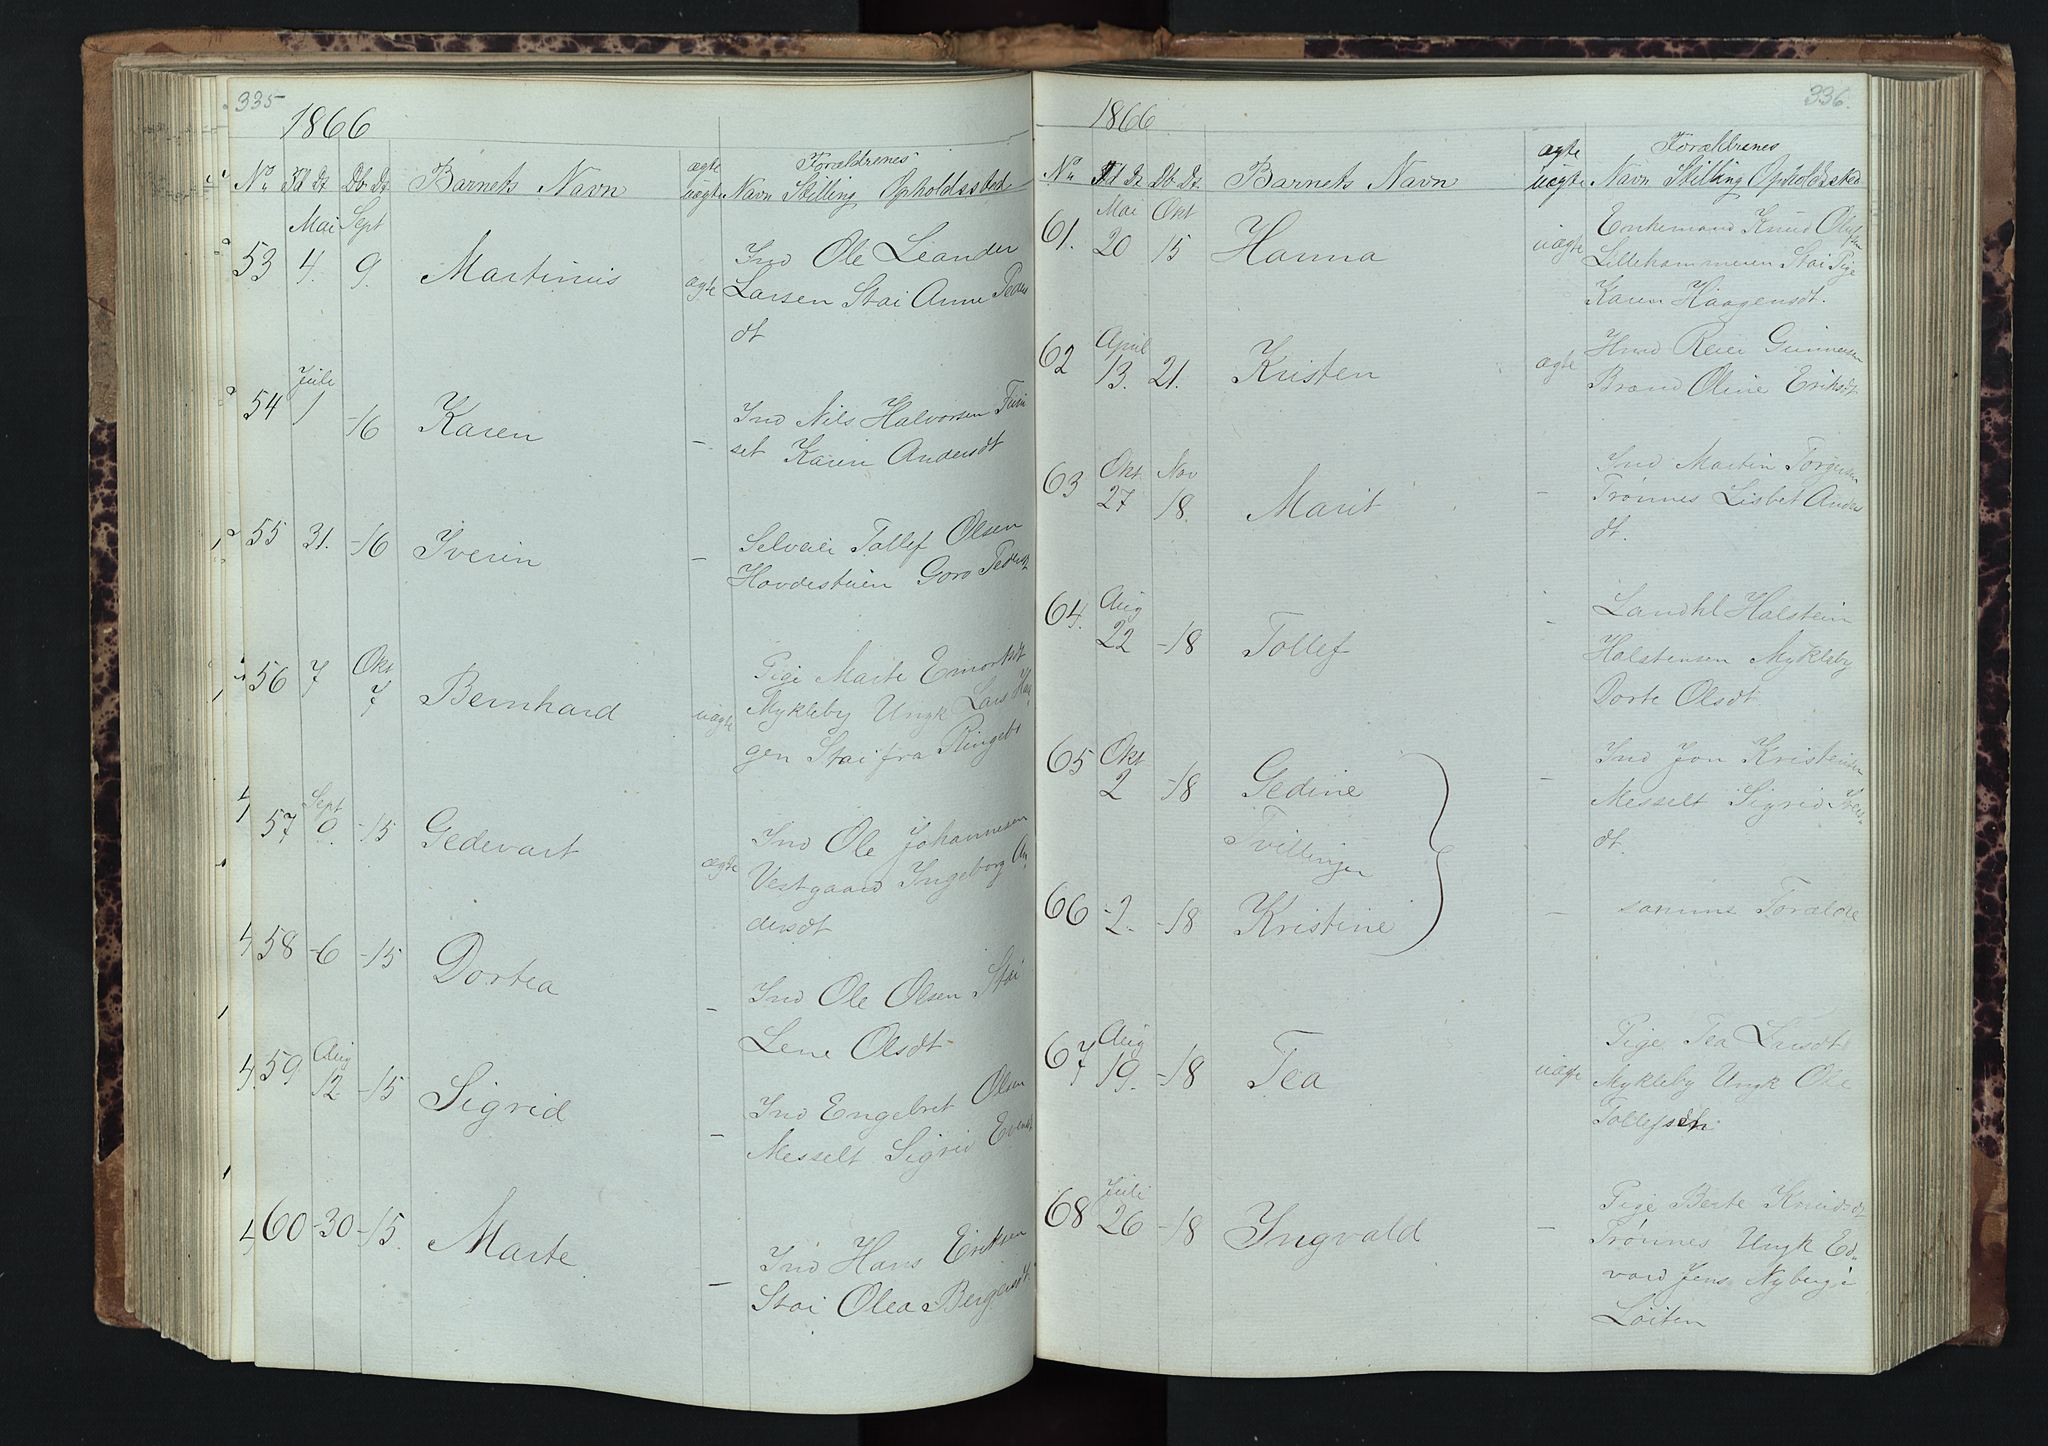 335
1866
ægte Forældrenes
No Fd Dt Db Dt Barnets Navn uægte Navn Stilling Opholdssted
Mai Sept
53 4. 9. Martinus ægte Ind Ole Leander
Larsen Stai Anne Peders
dt
Juli
54 1 -16 Karen - Ind Nils Halvorsen
set Karen Andersdt
55 31. -16 Iverin - Selveier Tollef Olsen
Hovdestuen Goro Pedersdt
Okt
56 7 7 Bernhard uægte Pige Marte
Mykleby Ungk Lars Haa
gen Stai fra Ringebo
Sept
57 9. -15 Gedevart ægte Ind Ole Johannesen
Vestgaard Ingeborg An
dersdt
58 -6 -15 Dortea - Ind Ole Olsen Stai
Lene Olsdt
Aug
59 12 -15 Sigrid - Ind Engebret Olsen
Messelt Sigrid Evensdt
60 -30 -15. Marte - Ind Hans Eriksen
Stai Olea Bergersdt
336.
1866
ægte Forældrenes
No Fd Dt Db Dt Barnets Navn uægte Navn Stilling Opholdssted
Mai Okt
61. 20 15 Hanna uægte Enkemand Knud Oluf
sen
Lillehammeren Stai Pige
Karen Haagensdt.
April
62 13. 21. Kristen ægte Husd Reier Gunnersen
Brænd Oline Eriksdt
Okt Nov
63 27 18. Marit - Ind Martin Torgersen
Trønnes Lisbet Anders
dt.
Aug
64. 22 -18 Tollef - Landhl Halstein
Halstensen Mykleby
Dorte Olsdt
Okt
65 2 -18 Gedine - Ind Jon Kristensen
Messelt Sigrid Ivers
dt.
Tvillinger
66 -2. -18 Kristine - samme Forældre
Aug
67 19. -18 Tea uægte Pige Tea Larsdt
Mykleby Ungk Ole
Tollefsen
Juli
68 26 -18 Ingvald - Pige Berte Knudsdt
Trønnes Ungk Ed-
vard Jens Nyberg i
Løiten